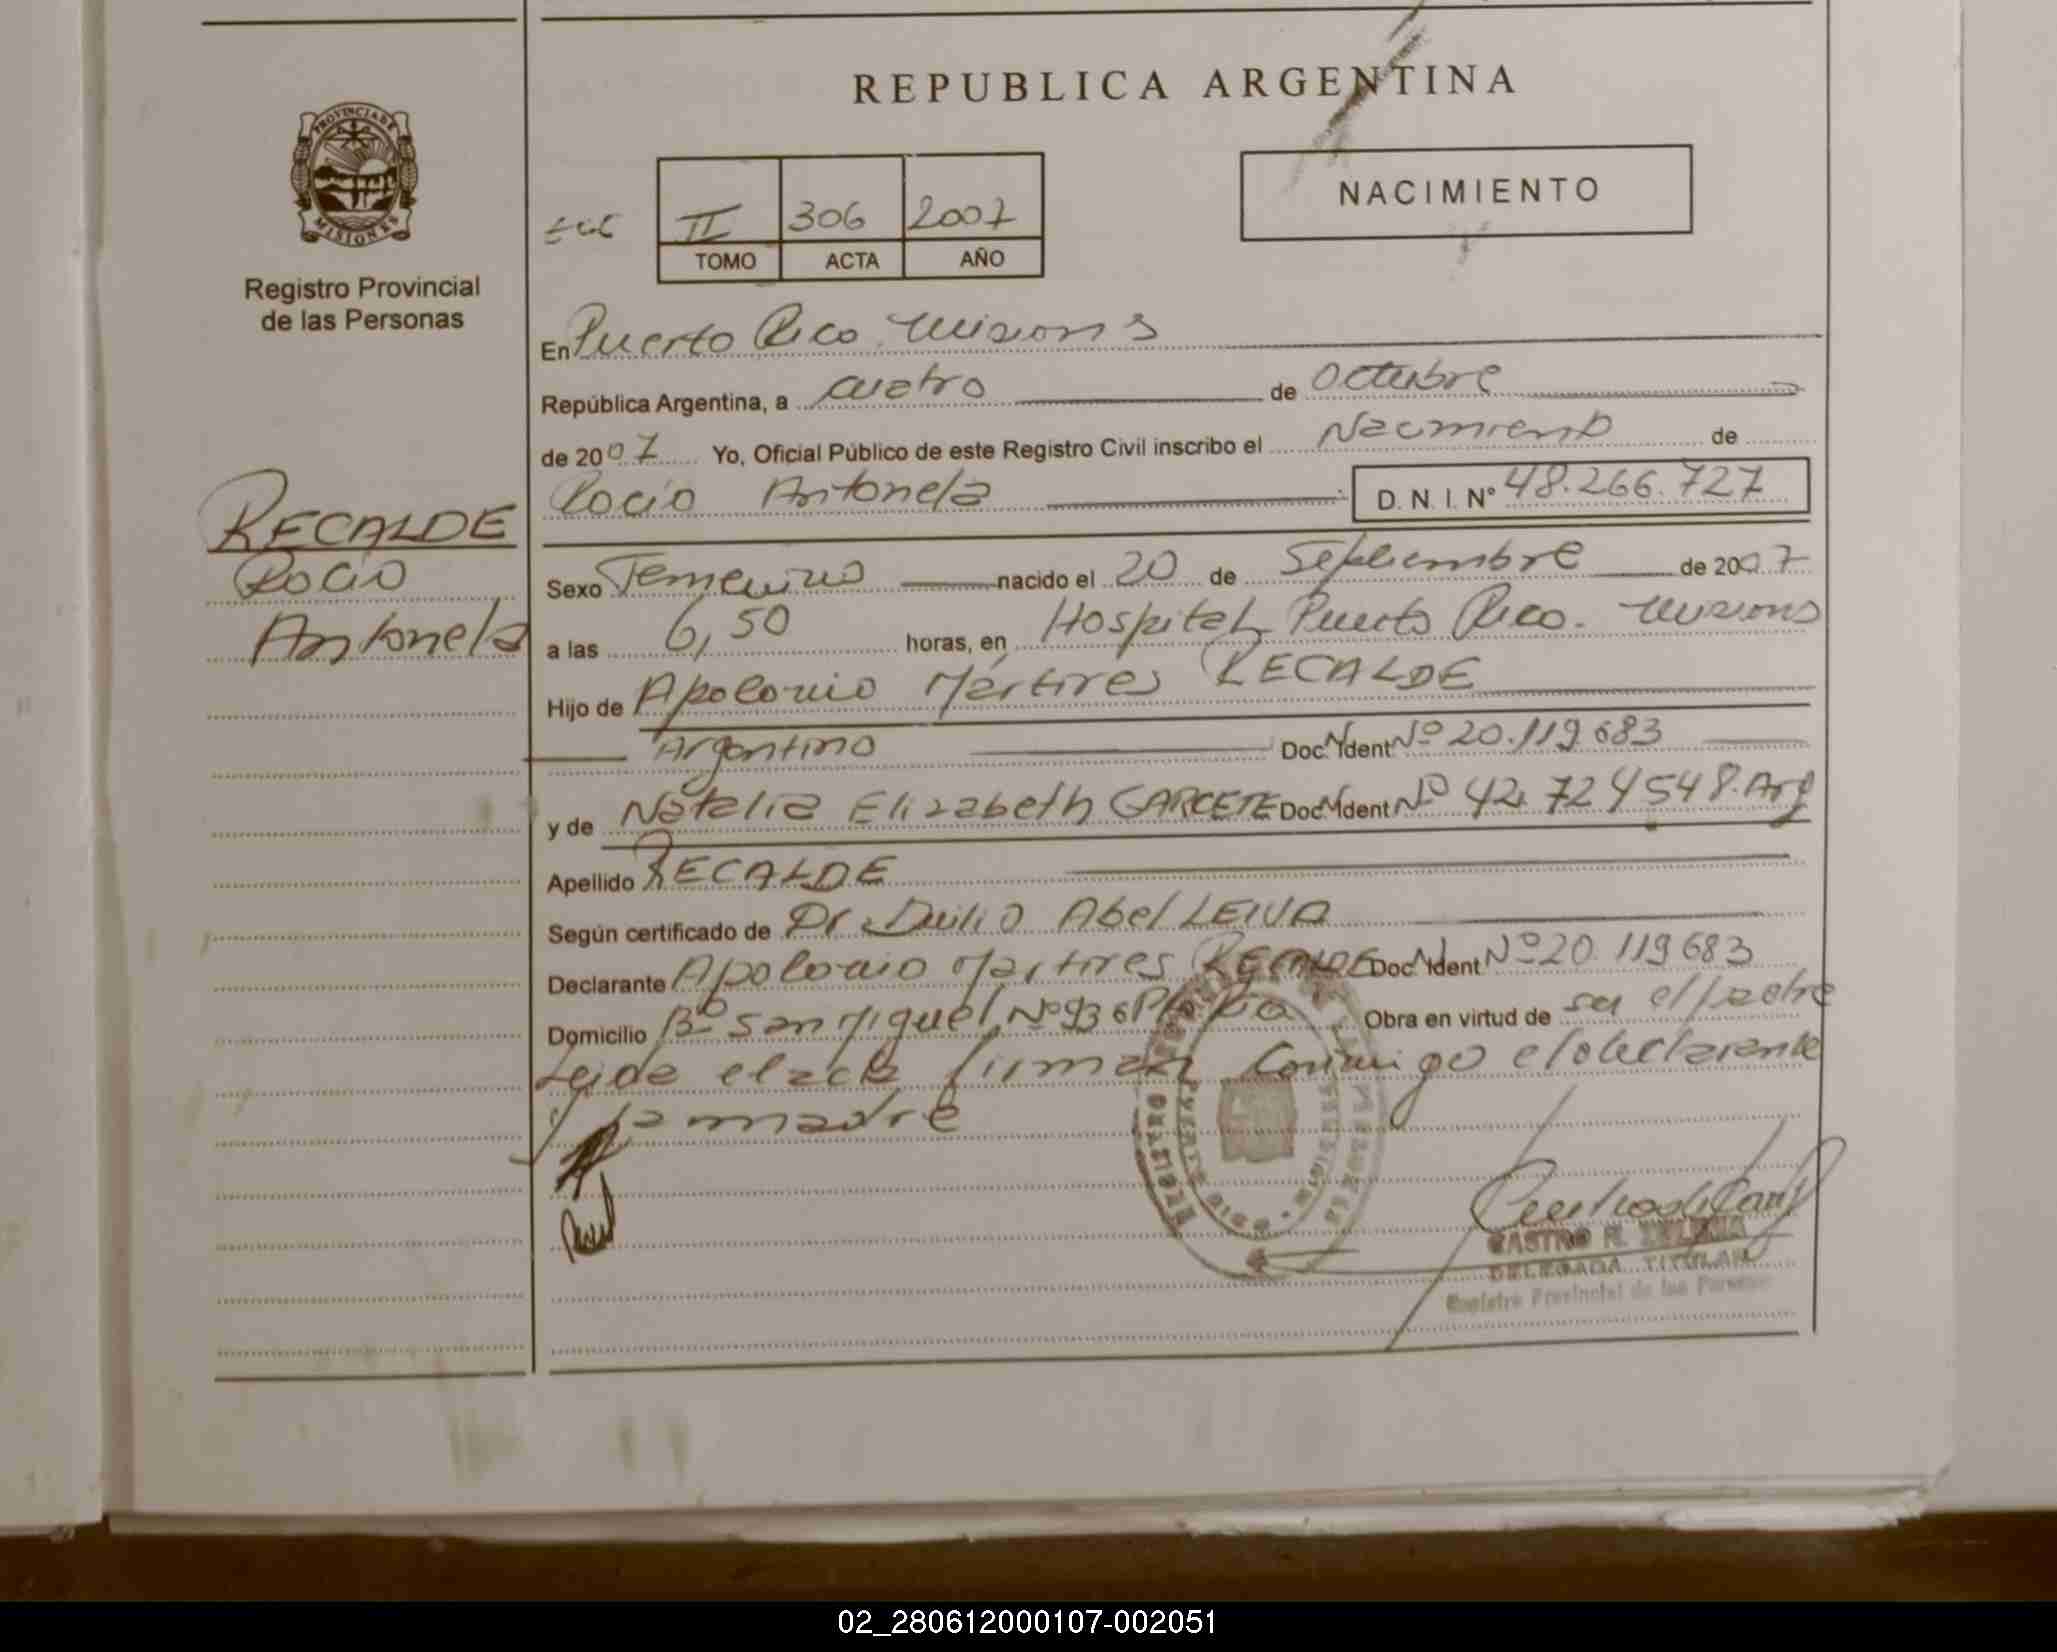 REPUBLICA ARGENTINA
PROVINCIA DE
MISIONES
Registro Provincial
de las Personas
II 306 2007
TOMO ACTA AÑO
NACIMIENTO
En Puerto Rico. Misiones
República Argentina, a cuatro de Octubre
de 2007 Yo, Oficial Público de este Registro Civil inscribo el Nacimiento de
Rocio Antonela D. N. I. N° 48.266.727
RECALDE
Rocio
Antonela
Sexo Femenino nacido el 20 de Septiembre de 2007
a las 6,50 horas, en Hospital Puerto Rico. Misiones
Hijo de Apolonio Mártires RECALDE
Argentino Doc. Ident Nº 20.119683
y de Natalia Elizabeth GARCETE Doc. Ident Nº 42.724548. Arg
Apellido RECALDE
Según certificado de Dr. Duilio Abel LEIVA
Declarante Apolonio Martires RECALDE Doc. Ident Nº 20.119683
Domicilio Bº San Miguel Nº 936 Pto Rico Obra en virtud de ser el padre
Leida el acta firman conmigo el declarante
y la madre
CASTRO R.
DELEGADA TITULAR
Registro Provincial de las Personas
02_280612000107-002051